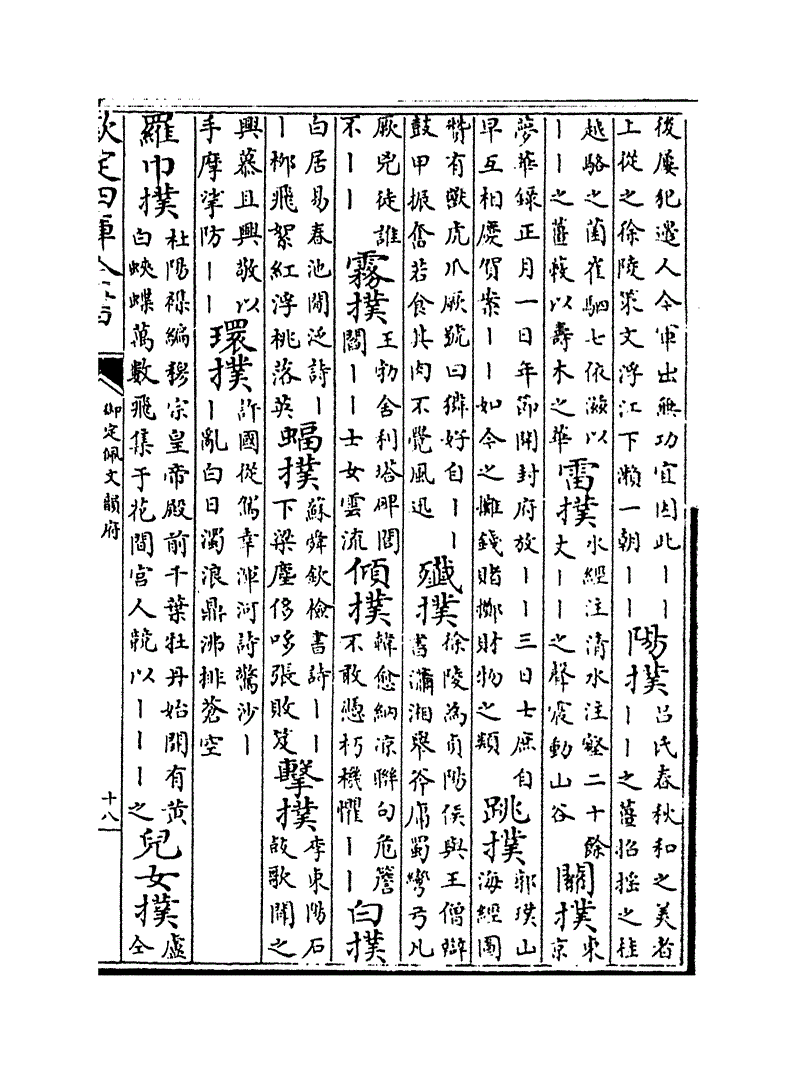 後屢犯邊人今軍出無功宜因此丨丨
上從之徐陵策文浮江下瀨一朝丨丨
陽撲
呂氏春秋和之美者
丨丨之薑招搖之桂
越駱之菌崔駰七依滋以
丨丨之薑蓛以壽木之華
雷撲
水經注清水注壑二十餘
丈丨丨之聲震動山谷
關撲
東
京
夢華錄正月一日年節開封府放丨丨三日士庶自
早互相慶賀案丨丨如今之攤錢賭擲財物之類
跳撲
郭璞山
海經圖
贊有獸虎爪厥號曰獜好自丨丨
鼓甲振奮若食其肉不覺風迅
殲撲
徐陵為貞陽侯與王僧辯
書瀟湘舉斧庸蜀彎弓凡
厥兇徒誰
不丨丨
霧撲
王勃舍利塔碑閭
閻丨丨士女雲流
傾撲
韓愈納涼聯句危簷
不敢憑朽機懼丨丨
白撲
白居易春池閒泛詩丨
丨柳飛絮紅浮桃落英
蝠撲
蘇舜欽檢書詩丨丨
下梁塵侈哆張敗笈
擊撲
李東陽石
鼓歌開之
興慕且興敬以
手摩挲防丨丨
環撲
許國從駕幸渾河詩驚沙丨
丨亂白日濁浪鼎沸排蒼空
羅巾撲
杜陽襍編穆宗皇帝殿前千葉牡丹始開有黃
白蛺蝶萬數飛集于花間宮人競以丨丨丨之
兒女撲
盧
仝
欽定四庫全書
御定佩文韻府
十八